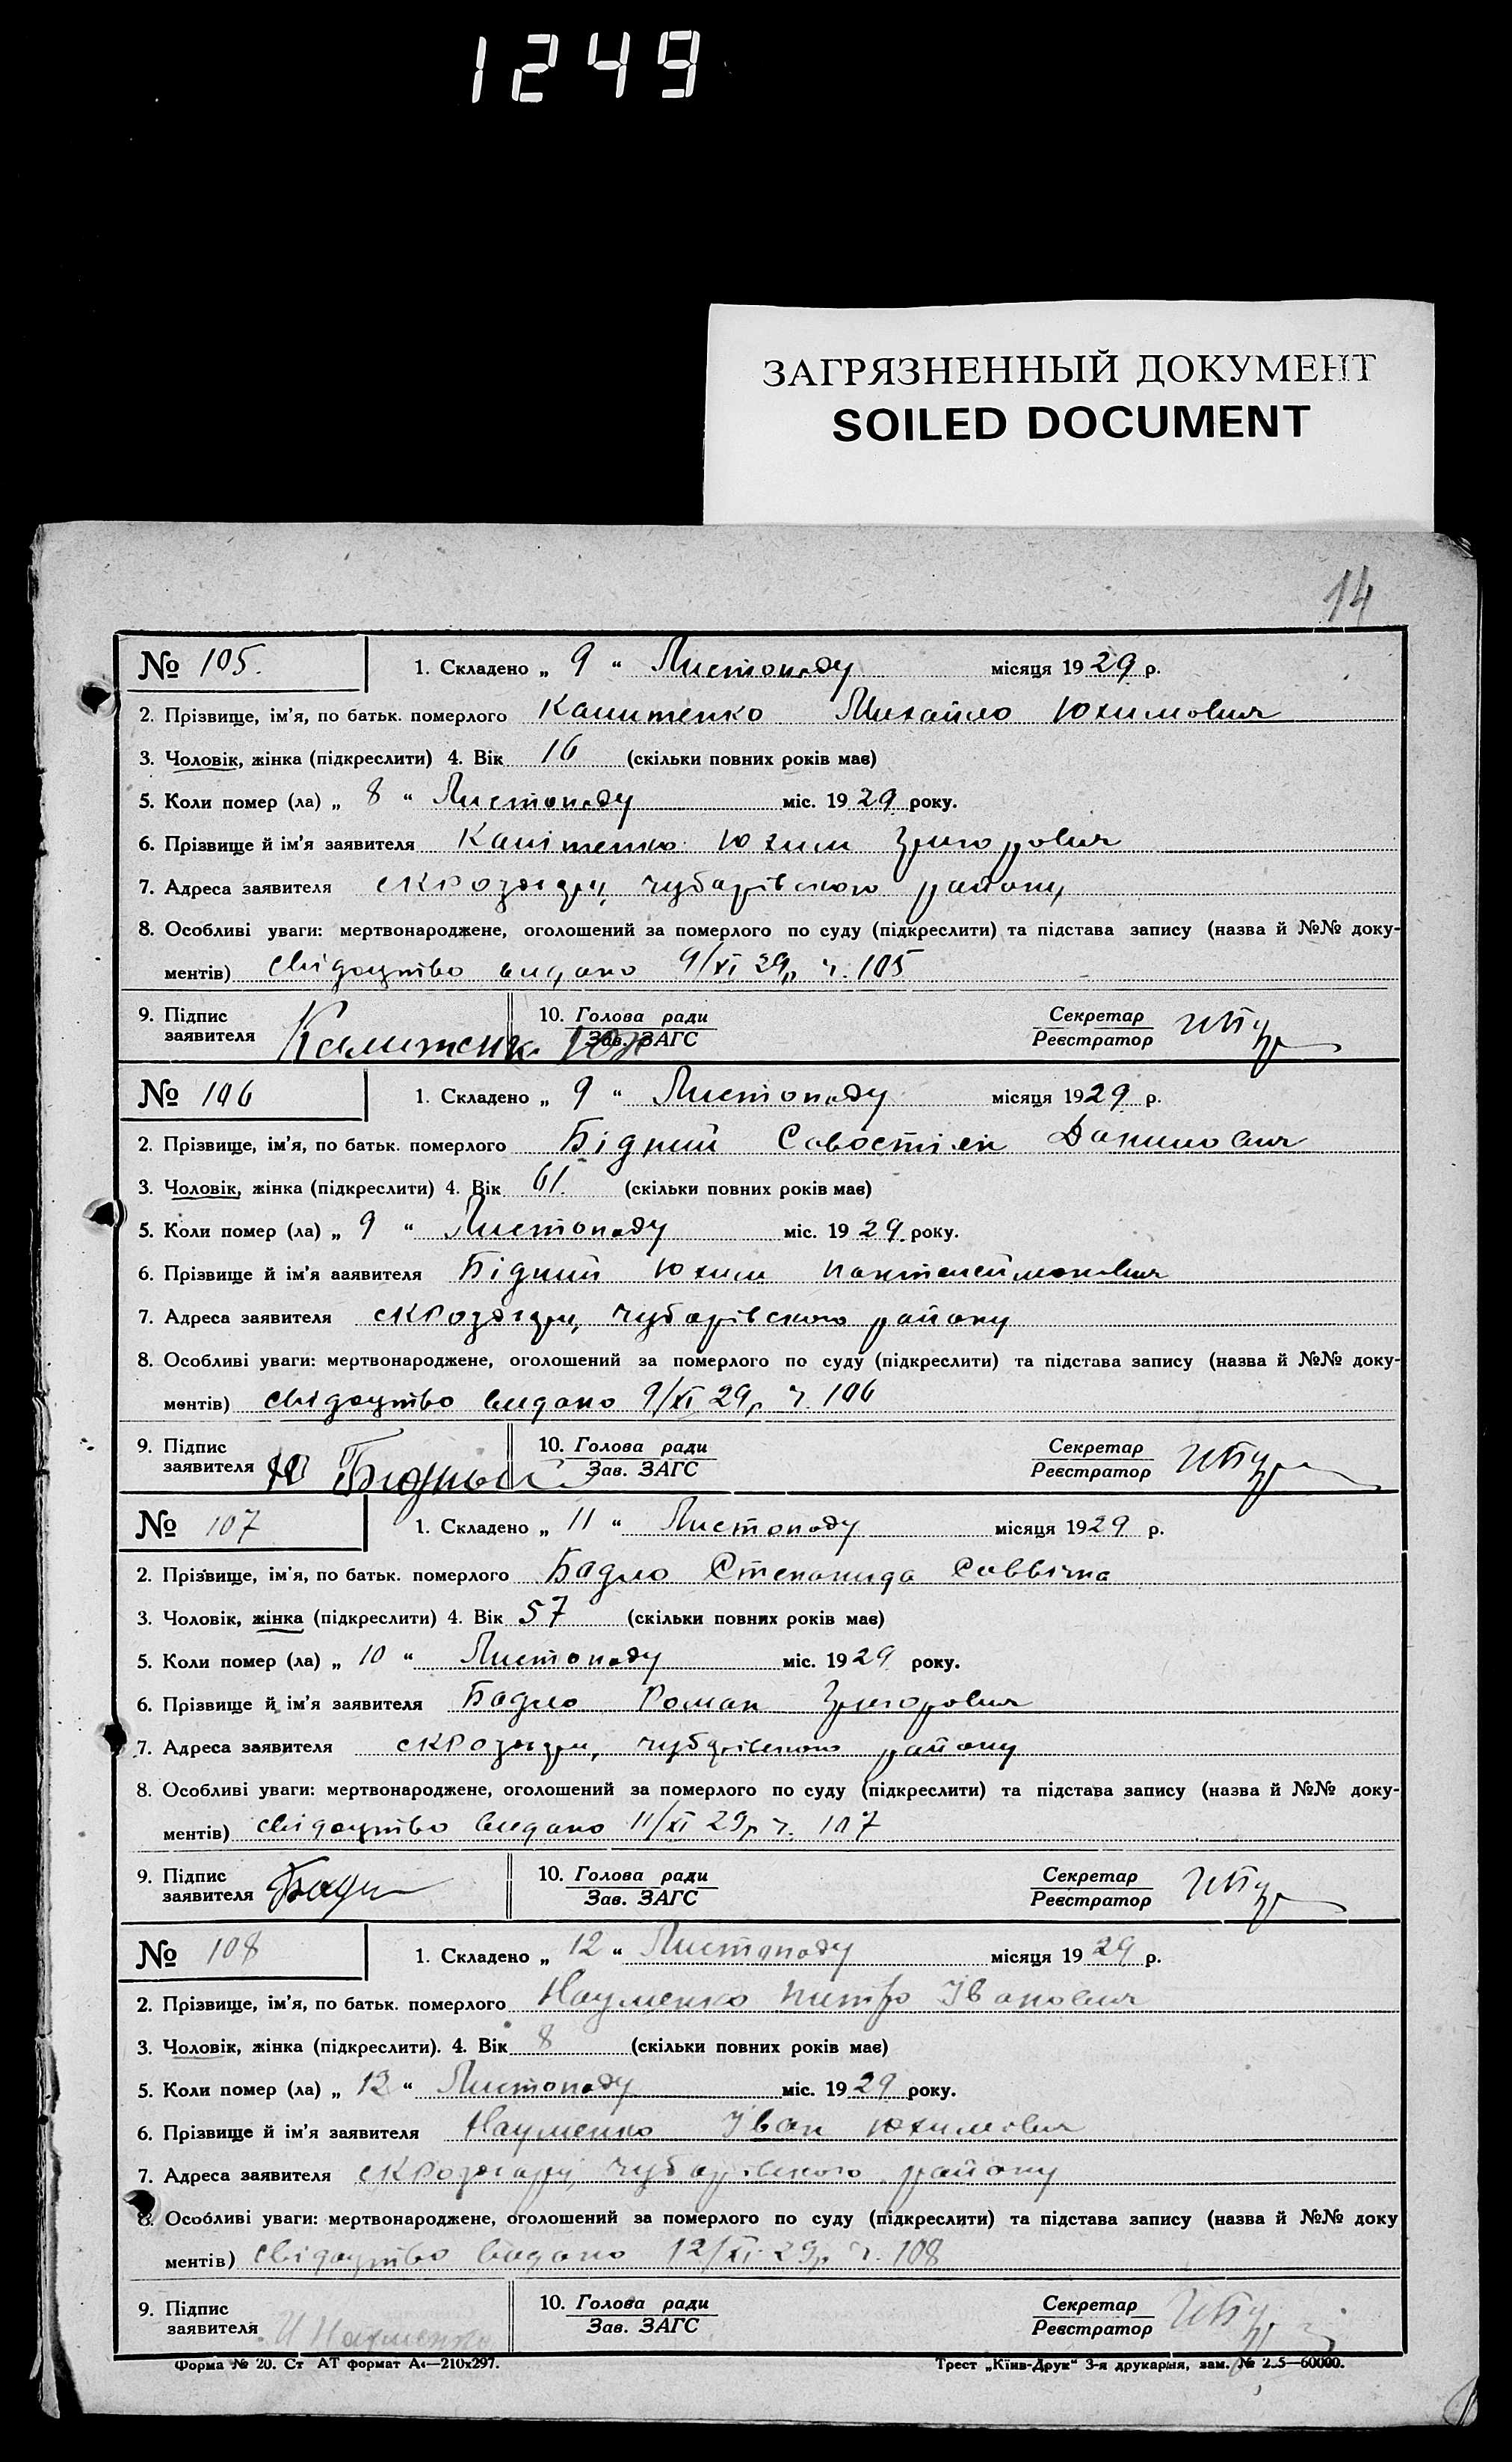 1249
ЗАГРЯЗНЕННЫЙ ДОКУМЕНТ
SOILED DOCUMENT
14
№ 105. 1. Складено „ 9 “ Листопаду місяця 1929 р.
2. Прізвище, ім'я, по батьк. померлого Михайло Юхимович
3. Чоловік, жінка (підкреслити) 4. Вік 16 (скільки повних років має)
5. Коли помер (ла) „ 8 “ Листопаду міс. 1929 року.
6. Прізвище й ім'я заявителя Юхим Григорович
7. Адреса заявителя чубарівського району
8. Особливі уваги: мертвонароджене, оголошений за померлого по суду (підкреслити) та підстава запису (назва й №№ доку-
ментів) свідоцтво видано 9/XI 29р ч. 105
9. Підпис заявителя 10. Голова ради Зав. ЗАГС Секретар Реєстратор
№ 106 1. Складено „ 9 “ Листопаду місяця 1929 р.
2. Прізвище, ім'я, по батьк. померлого Бідний Савостіян Данилович
3. Чоловік, жінка (підкреслити) 4. Вік 61. (скільки повних років має)
5. Коли помер (ла) „ 9 “ Листопаду міс. 1929 року.
6. Прізвище й ім'я ааявителя Бідний Юхим Пантелеймонович
7. Адреса заявителя чубарівського району
8. Особливі уваги: мертвонароджене, оголошений за померлого по суду (підкреслити) та підстава запису (назва й №№ доку-
ментів) свідоцтво видано 9/XI 29р ч. 106
9. Підпис заявителя Ю Бидный 10. Голова ради Зав. ЗАГС Секретар Реєстратор
№ 107 1. Складено „ 11 “ Листопаду місяця 1929 р.
2. Прізвище, ім'я, по батьк. померлого Бадло Степанида Саввічна
3. Чоловік, жінка (підкреслити) 4. Вік 57 (скільки повних років має)
5. Коли помер (ла) „ 10 “ Листопаду міс. 1929 року.
6. Прізвище й ім'я заявителя Бадло Роман Григорович
7. Адреса заявителя чубарівського району
8. Особливі уваги: мертвонароджене, оголошений за померлого по суду (підкреслити) та підстава запису (назва й №№ доку-
ментів) свідоцтво видано 11/XI 29р ч. 107
9. Підпис заявителя 10. Голова ради Зав. ЗАГС Секретар Реєстратор
№ 108 1. Складено „ 12 “ Листопаду місяця 1929 р.
2. Прізвище, ім'я, по батьк. померлого Науменко Питро Іванович
3. Чоловік, жінка (підкреслити). 4. Вік 8 (скільки повних років має)
5. Коли помер (ла) „ 12 “ Листопаду міс. 1929 року.
6. Прізвище й ім'я заявителя Науменко Іван Юхимович
7. Адреса заявителя чубарівського району
8. Особливі уваги: мертвонароджене, оголошений за померлого по суду (підкреслити) та підстава запису (назва й №№ доку
ментів) свідоцтво видано 12/XI 29р ч. 108
9. Підпис заявителя И Науменко 10. Голова ради Зав. ЗАГС Секретар Реєстратор
Форма № 20. Ст АТ формат А4—210х297. Трест „Київ-Друк“ 3-я друкарня, зам. № 2.5—60000.